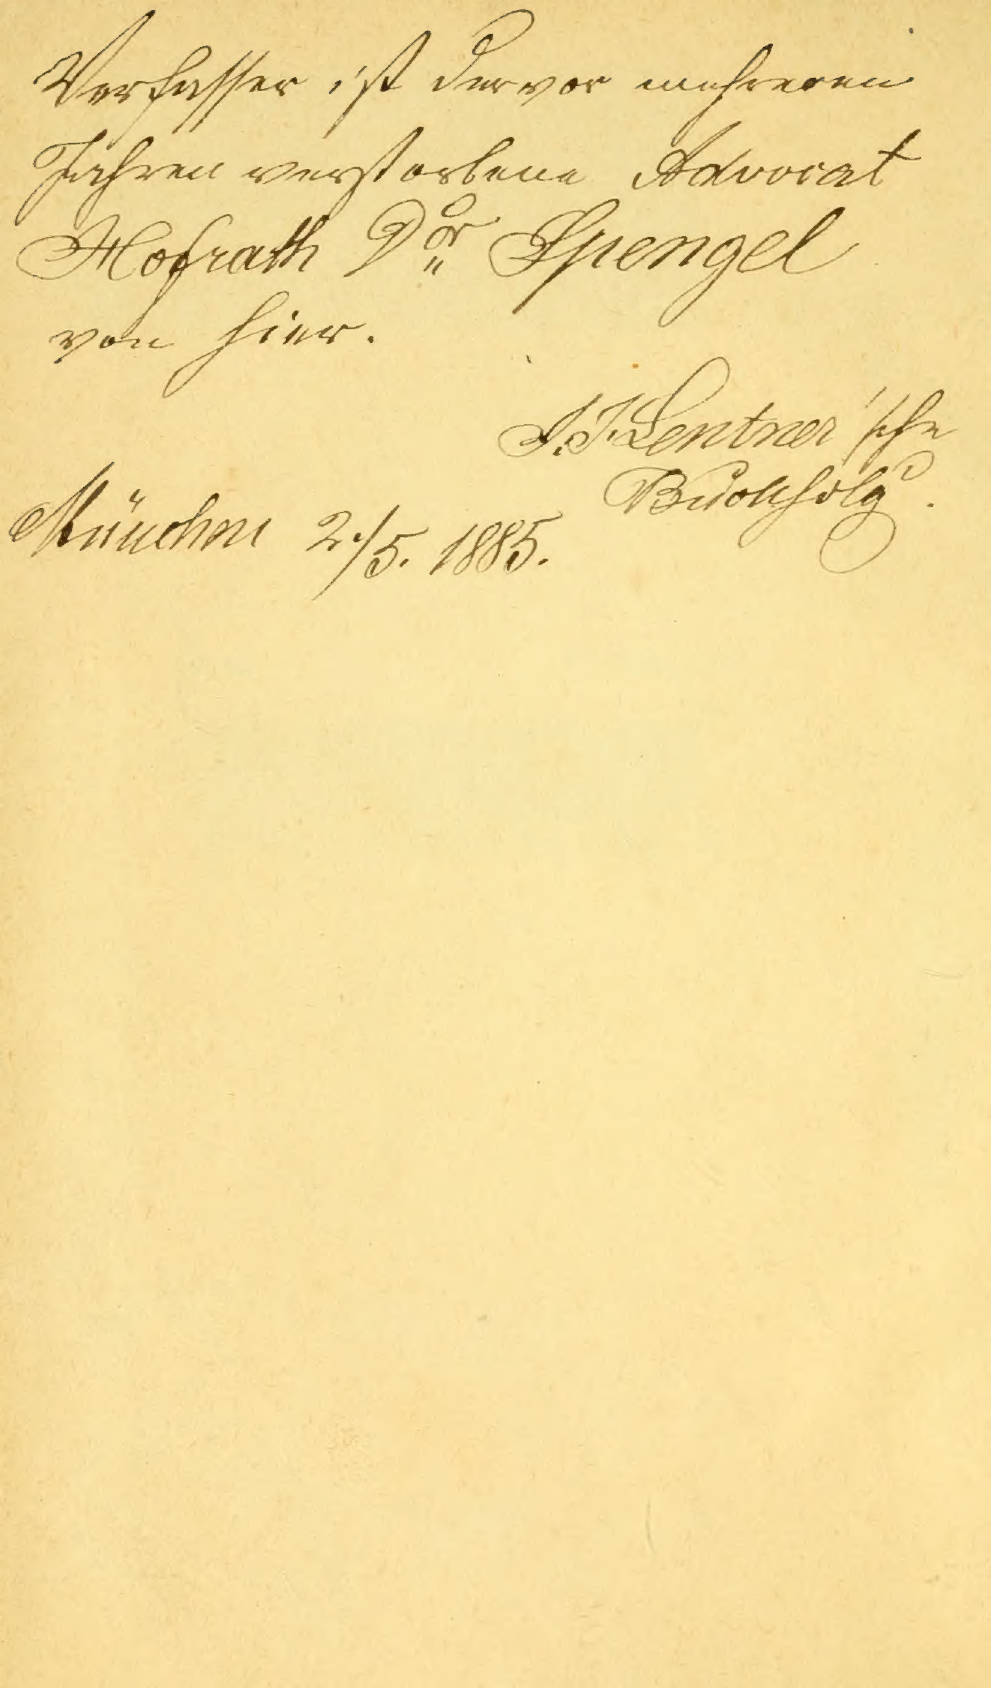 Verfasser ist der vor mehreren
Jahren verstorbene Advocat
Hofrath Dor Spengel
von hier.
J. J. Lentner'sche
Buchhdlg.
München 2./5. 1885.